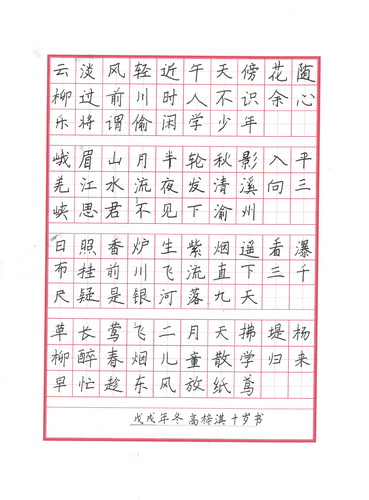 云淡风轻近午天傍花随
柳过前川时人不识余心
乐将谓偷闲学少年
峨眉山月半轮秋影入平
羌江水流夜发清溪向三
峡思君不见下渝州
日照香炉生紫烟遥看瀑
布挂前川飞流直下三千
尺疑是银河落九天
草长莺飞二月天拂堤杨
柳醉春烟儿童散学归来
早忙趁东风放纸鸢
戊戌年冬高梓淇十岁书